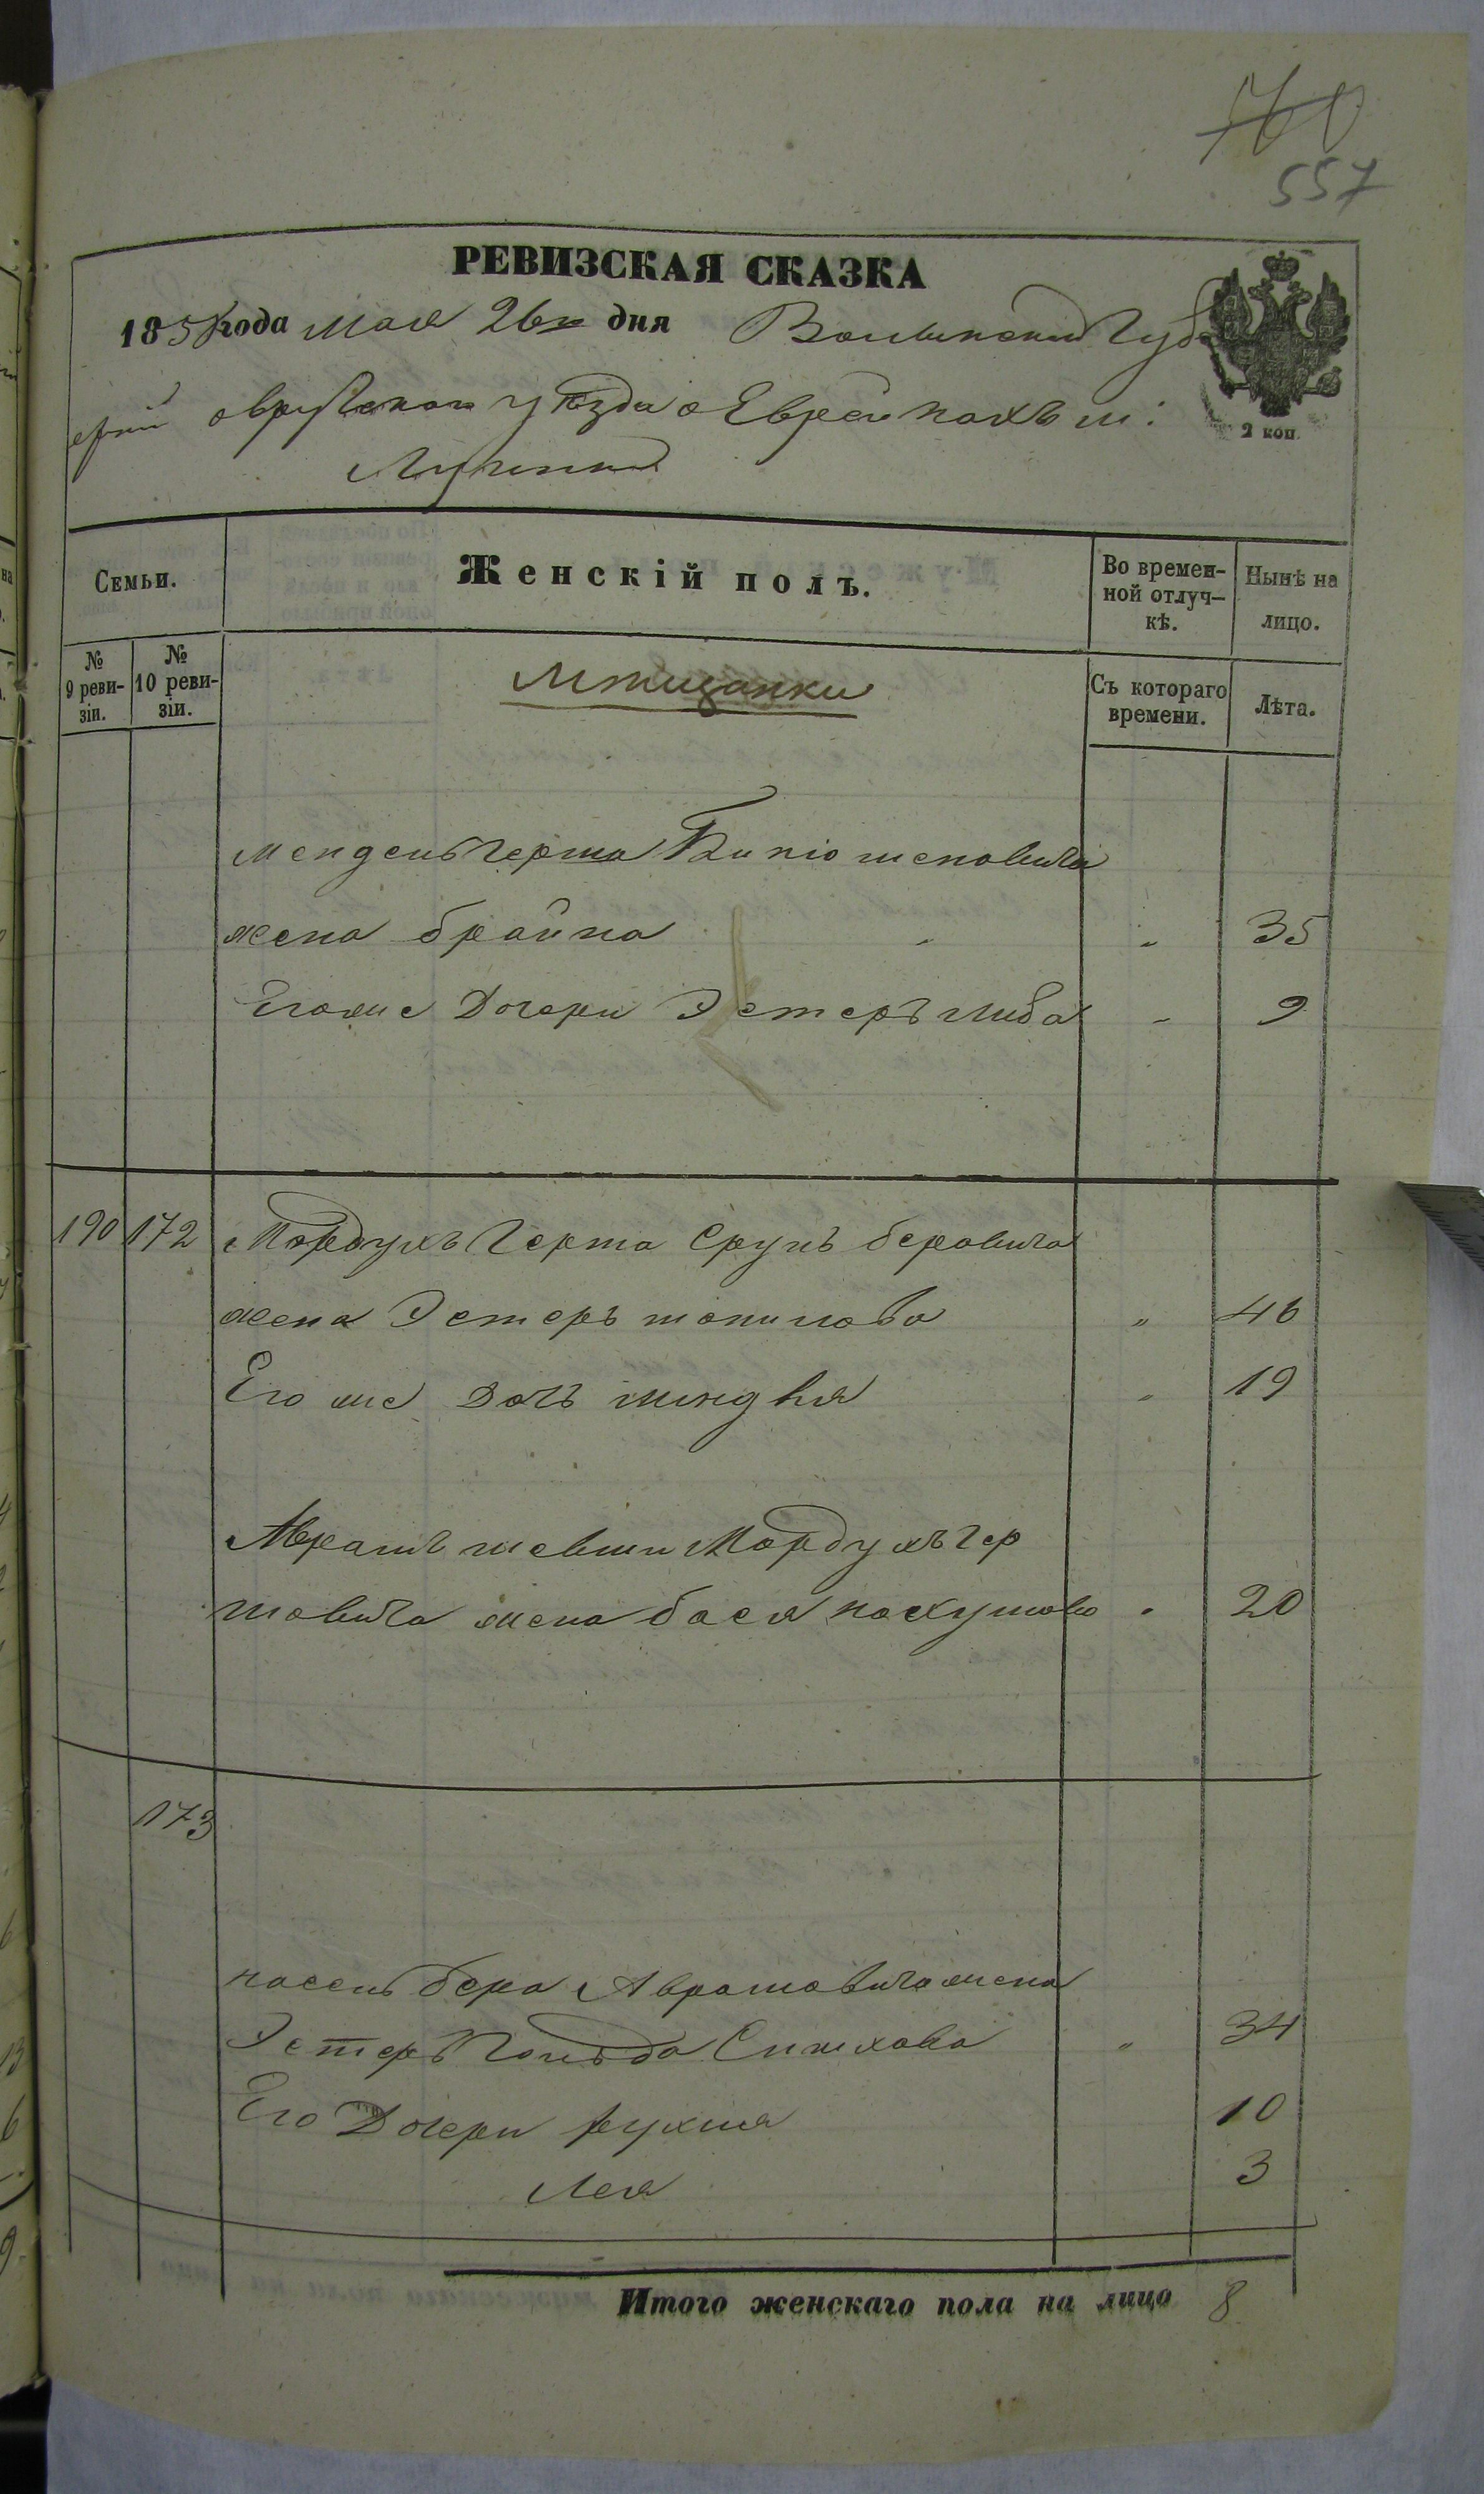 760
557
РЕВИЗСКАЯ СКАЗКА
1858 года Мая 26го дня Волынской Губ
ерніи Овручскаго уѣзда о Еврейкахъ м:
Лугинъ
2 коп.
Семьи.
Женскій полъ.
Во времен-
ной отлуч-
кѣ.
Нынѣ на
лицо.
№
9 реви-
зіи.
№
10 реви-
зіи.
Мѣщанки
Съ котораго
времени.
Лѣта.
Мендель Герша шеловича
жена брайна " " 35
Егоже Дочери Эстеръ либа " 9
190 172 Мордухъ Герша Сруль беровича
жена Эстеръ " 46
Его же Дочь " 19
Аврамъ Мордухъ Гер
шовича жена бася " 20
173
бера Аврамовича жена
Эстеръ Гольда Симхова " 34
Его Дочери рухля 10
Лея 3
Итого женскаго пола на лицо 8